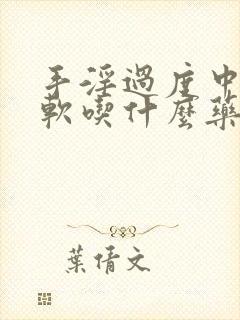 手淫過度中
軟喫什麼藥
葉倩文